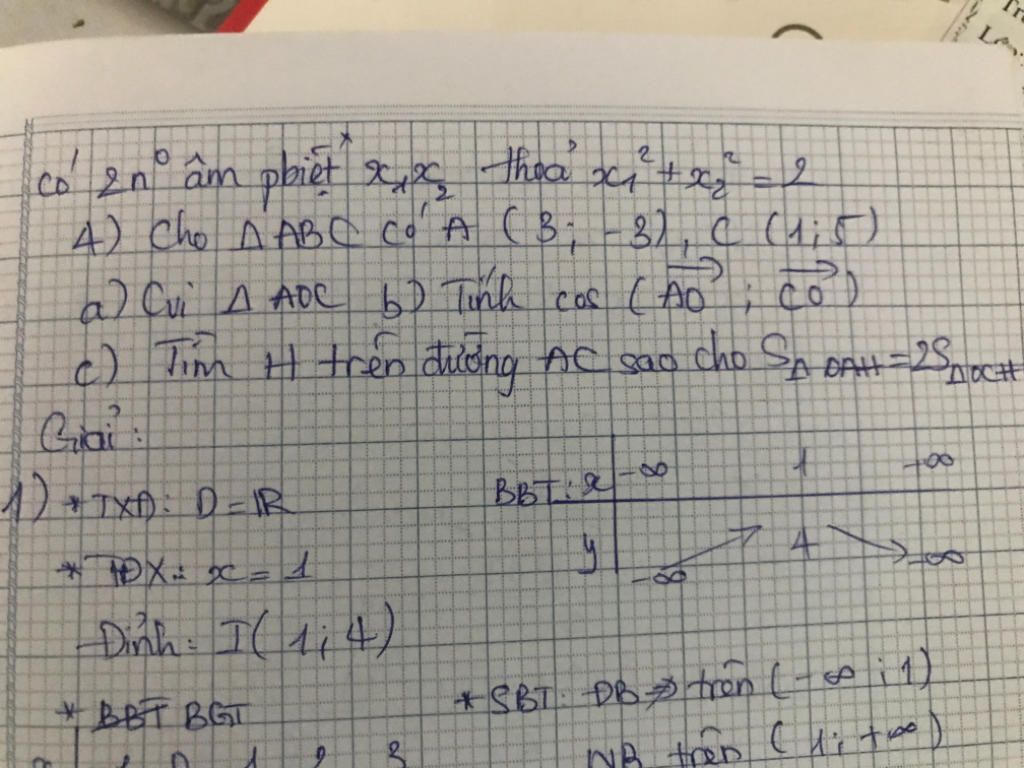 Tr
Lo
có 2n⁰ âm pbiệt x₁x₂ thoả x₁² + x₂² = 2
4) Cho Δ ABC có A (3; -3), C (1; 5)
a) Cvi Δ AOC b) Tính cos (AO ; CO)
c) Tìm H trên đường AC sao cho SΔ OAH = 2SΔOCH
Giải:
1) * TXĐ: D = ℝ
BBT: x -∞ 1 +∞
y -∞ 4 -∞
* TĐX: x = 1
Đỉnh: I( 1; 4)
* BBT BGT
* SBT: ĐB trên (-∞ ; 1)
NB trên (1; +∞)
1 2 3